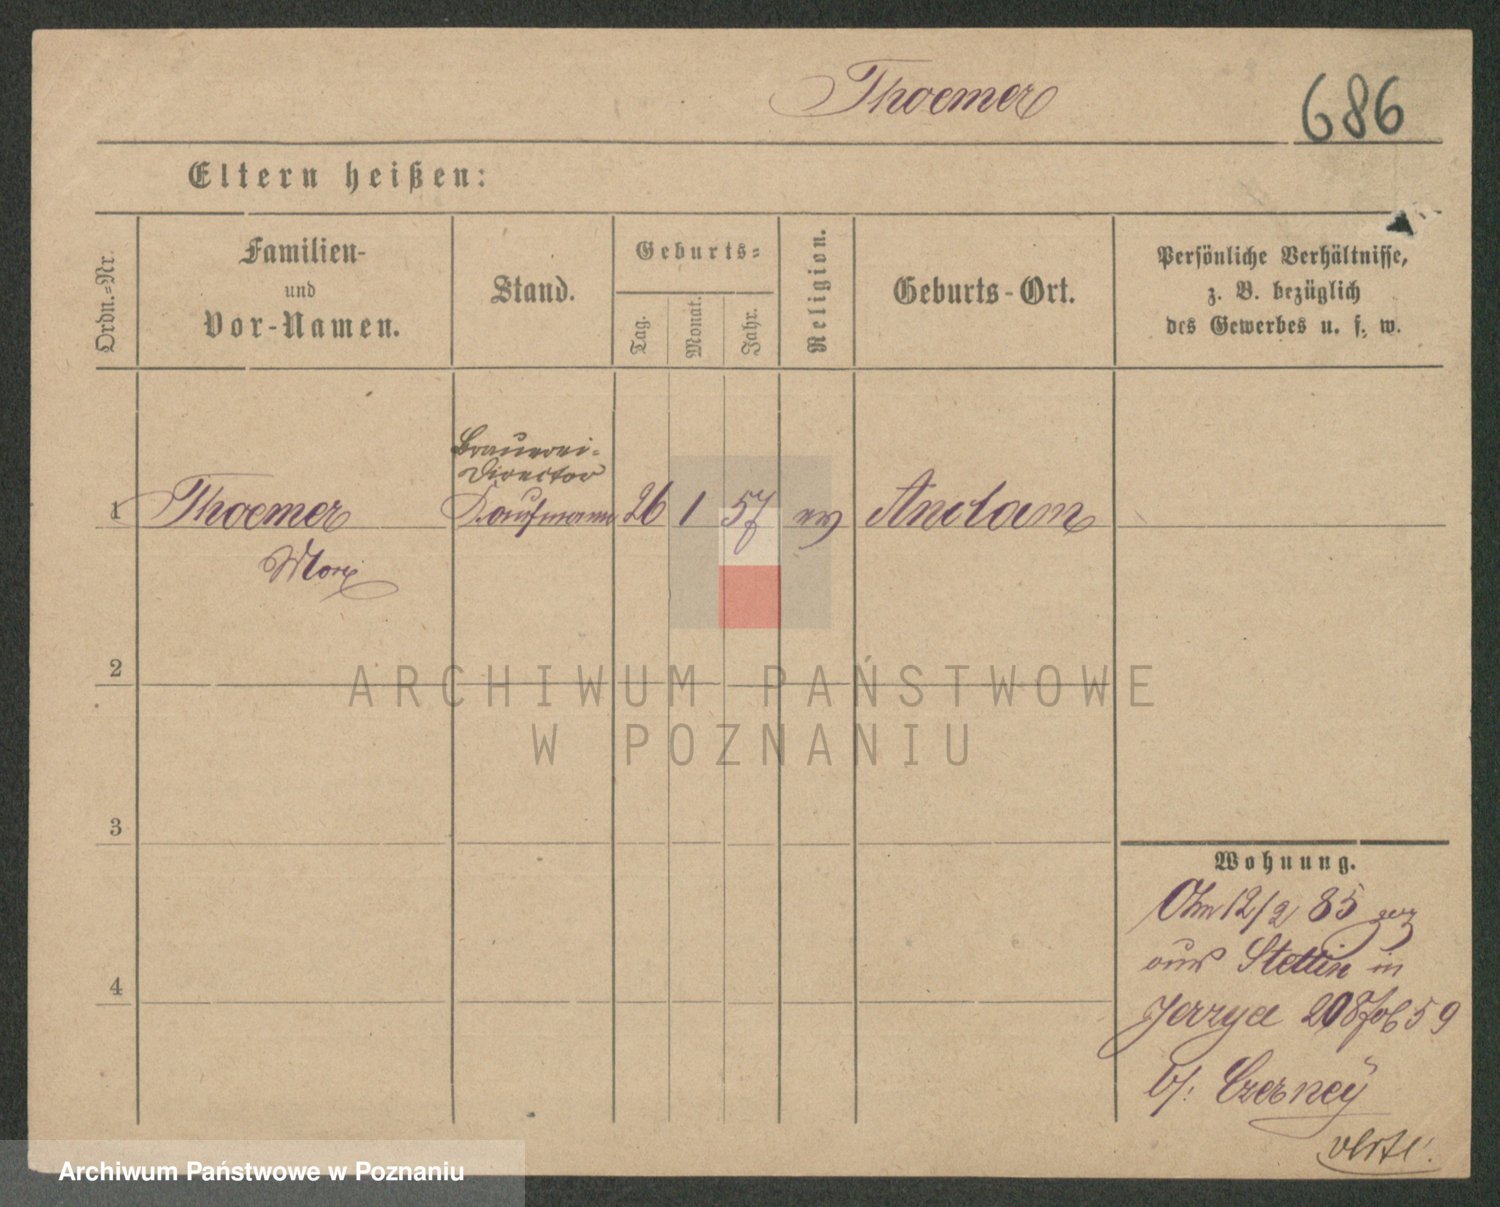 Thoemer
686
Eltern heißen:
Ordn.-Nr.
Familien-
und
Vor-Namen.
Stand.
Geburts-
Tag.
Monat.
Jahr.
Religion.
Geburts-Ort.
Persönliche Verhältnisse,
z. B. bezüglich
des Gewerbes u. s. w.
Brauerei-
Director
1 Thoemer Kaufmann 26 1 57 ev Anclam
Max
2
ARCHIWUM PAŃSTWOWE
W POZNANIU
3
4
Wohnung.
12/2 85
aus Stettin in
59
b/: Czerney
Archiwum Państwowe w Poznaniu